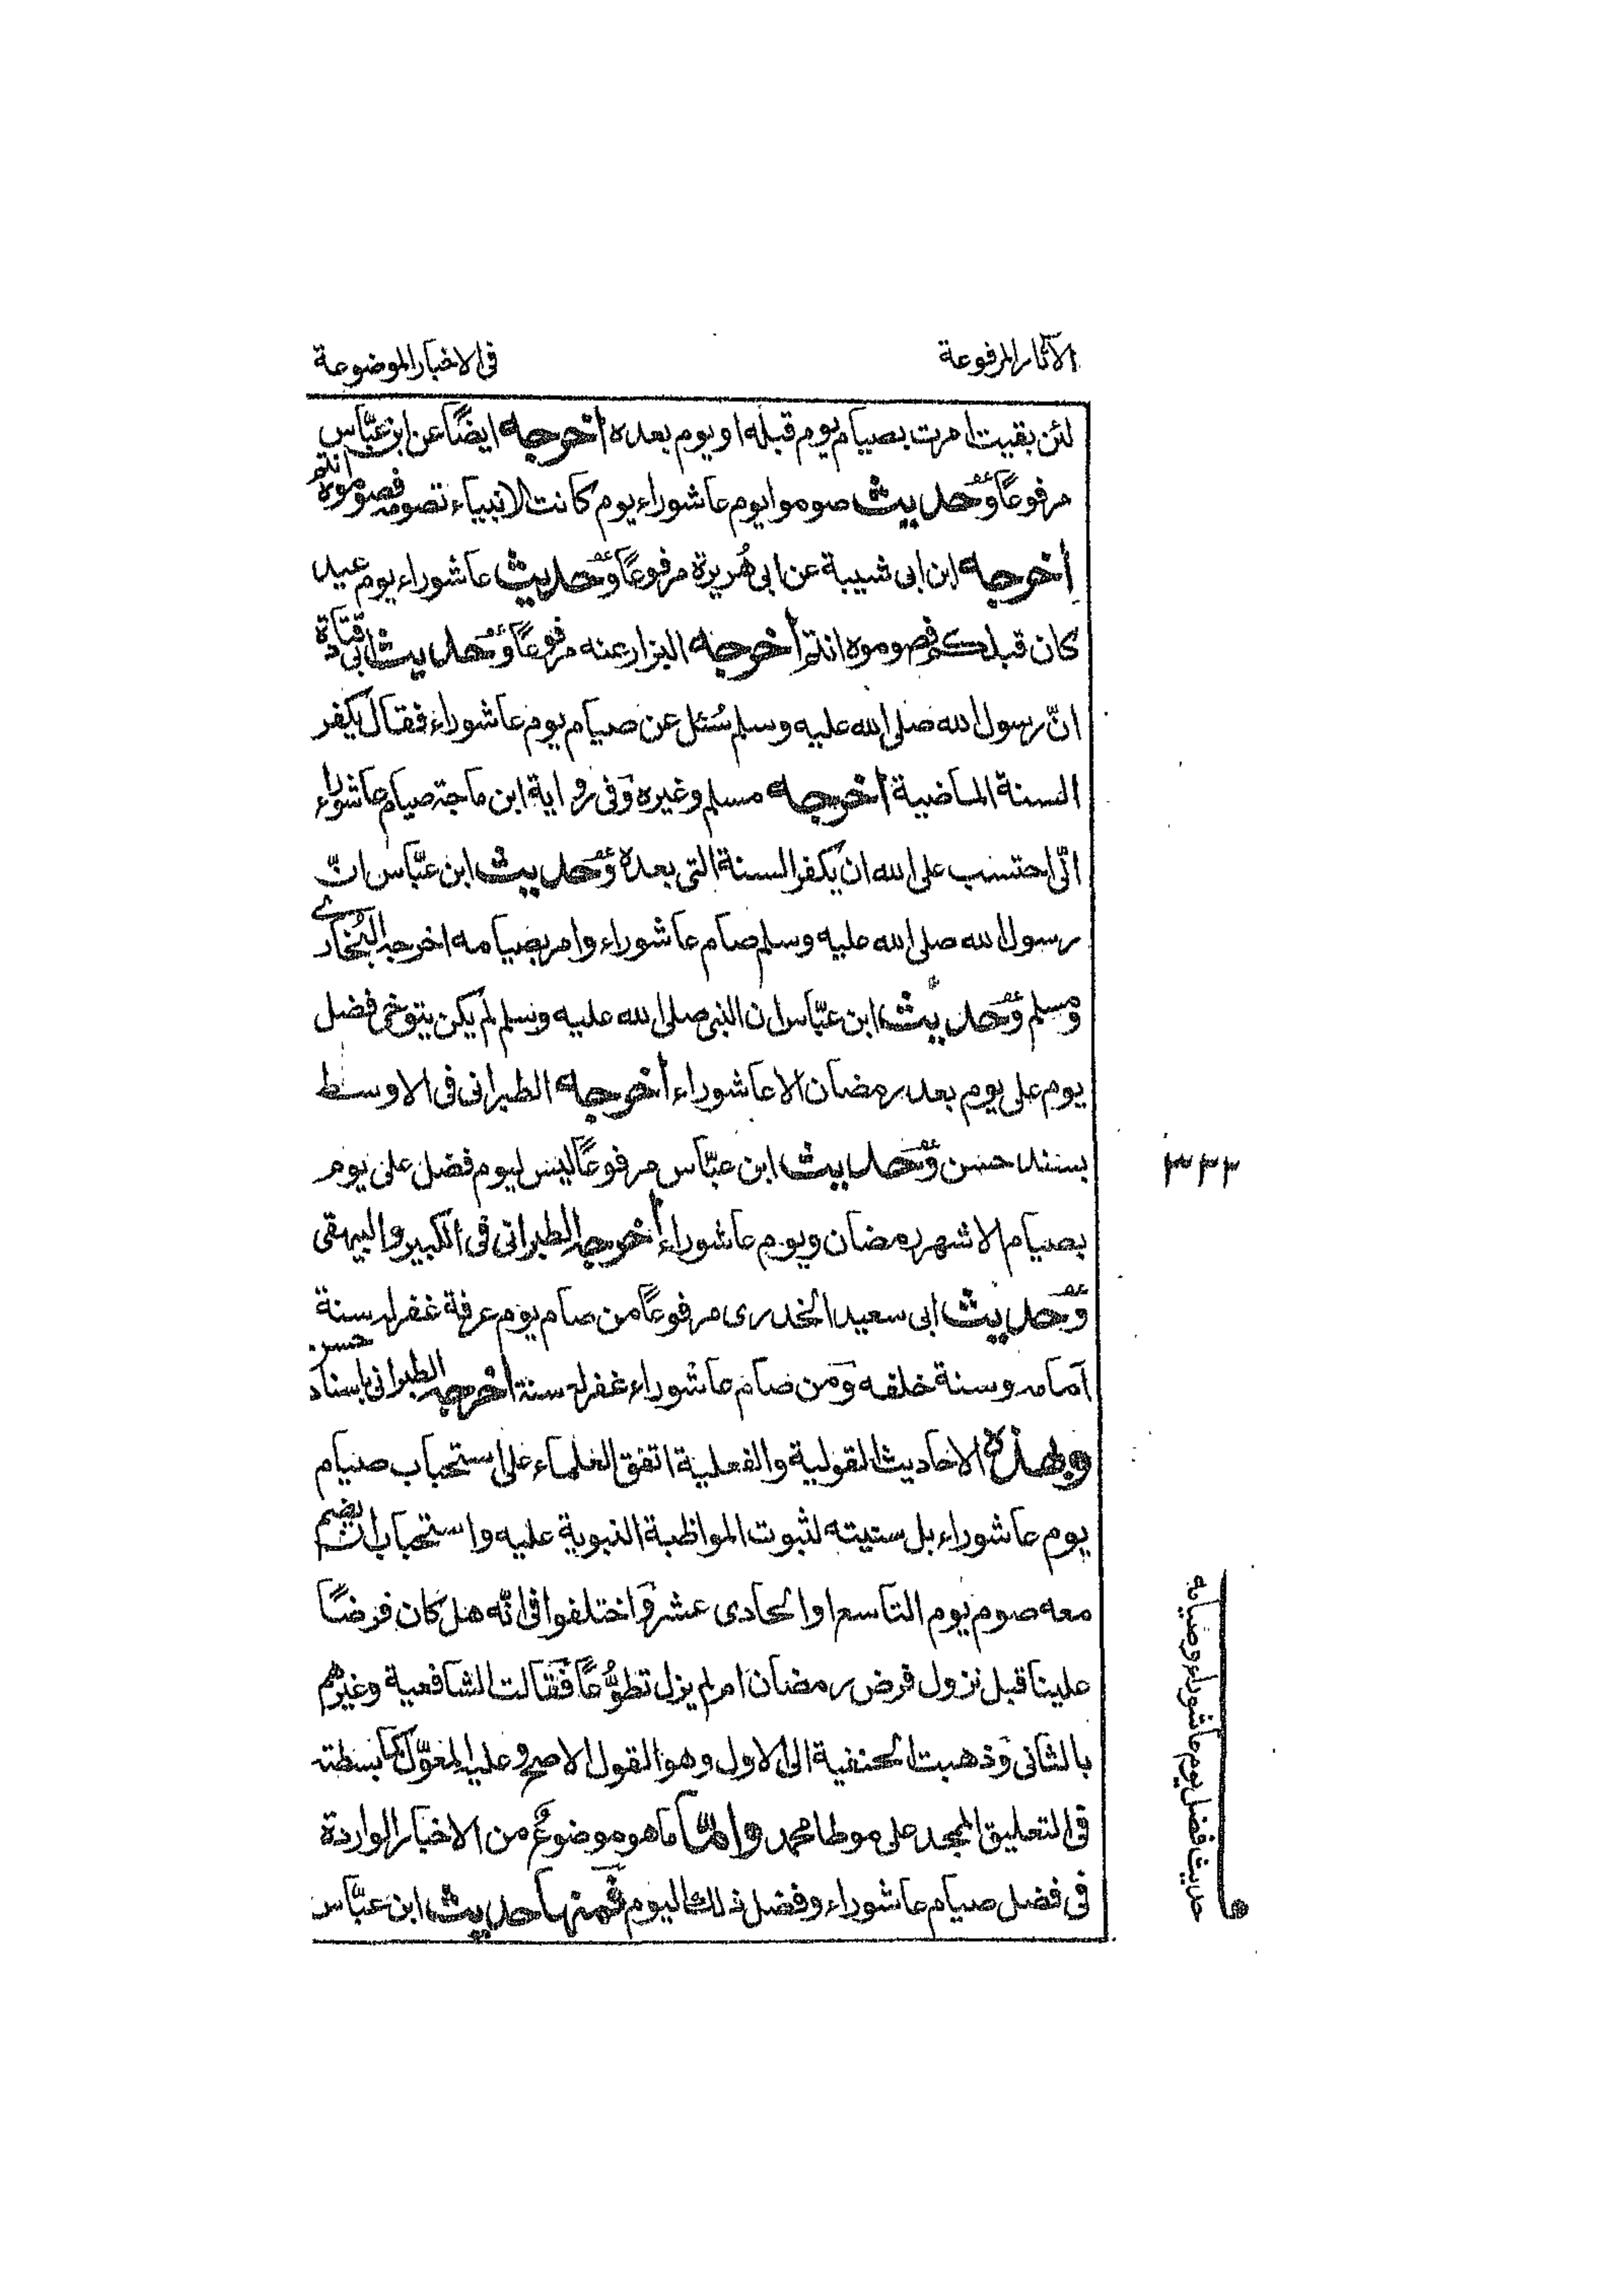 الآثار المرفوعة
فى الاخبار الموضوعة
لئن بقيت امرت بصيام يوم قبله او يوم بعده اخرجه ايضًا عن ابن عبّاس
مرفوعًا وحديث صوموا يوم عاشوراء يوم كانت الانبياء تصومه فصوموه انتم
اخرجه ابن ابى شيبة عن ابى هُريرة مرفوعًا وحديث عاشوراء يوم عيد
كان قبلكم فصوموه انتم اخرجه البزار عنه مرفوعًا وحديث ابى قتادة
انّ رسول الله صلى الله عليه وسلم سُئل عن صيام يوم عاشوراء فقال يكفر
السنة الماضية اخرجه مسلم وغيره وفى رواية ابن ماجة صيام عاشوراء
انّى احتسب على الله ان يكفر السنة التى بعده وحديث ابن عبّاس انّ
رسول الله صلى الله عليه وسلم صام عاشوراء وامر بصيامه اخرجه البُخارى
ومسلم وحديث ابن عبّاس ان النبى صلى الله عليه وسلم لم يكن يتوخى فضل
يوم على يوم بعد رمضان الا عاشوراء اخرجه الطبرانى فى الاوسط
بسند حسن وحديث ابن عبّاس مرفوعًا ليس ليوم فضل على يوم
بصيام الا شهر رمضان ويوم عاشوراء اخرجه الطبرانى فى الكبير والبيهقى
وحديث ابى سعيد الخدرى مرفوعًا من صام يوم عرفة غفر له سنة
امامه وسنة خلفه ومن صام عاشوراء غفر له سنة اخرجه الطبرانى باسناد حسن
وبهذه الاحاديث القولية والفعلية اتفق العلماء على استحباب صيام
يوم عاشوراء بل سنيته لثبوت المواظبة النبوية عليه واستحباب ان يضم
معه صوم يوم التاسع او الحادى عشر واختلفوا فى انّه هل كان فرضًا
علينا قبل نزول فرض رمضان ام لم يزل تطوُّعًا فقالت الشافعية وغيرهم
بالثانى وذهبت الحنفية الى الاول وهو القول الاصح وعليه المعوّل كما بسطته
فى التعليق الممجد على موطا محمد وامّا ما هو موضوعٌ من الاخبار الواردة
فى فضل صيام عاشوراء وفضل ذلك اليوم فمنها حديث ابن عبّاس
حديث فضل يوم عاشوراء وصيامه